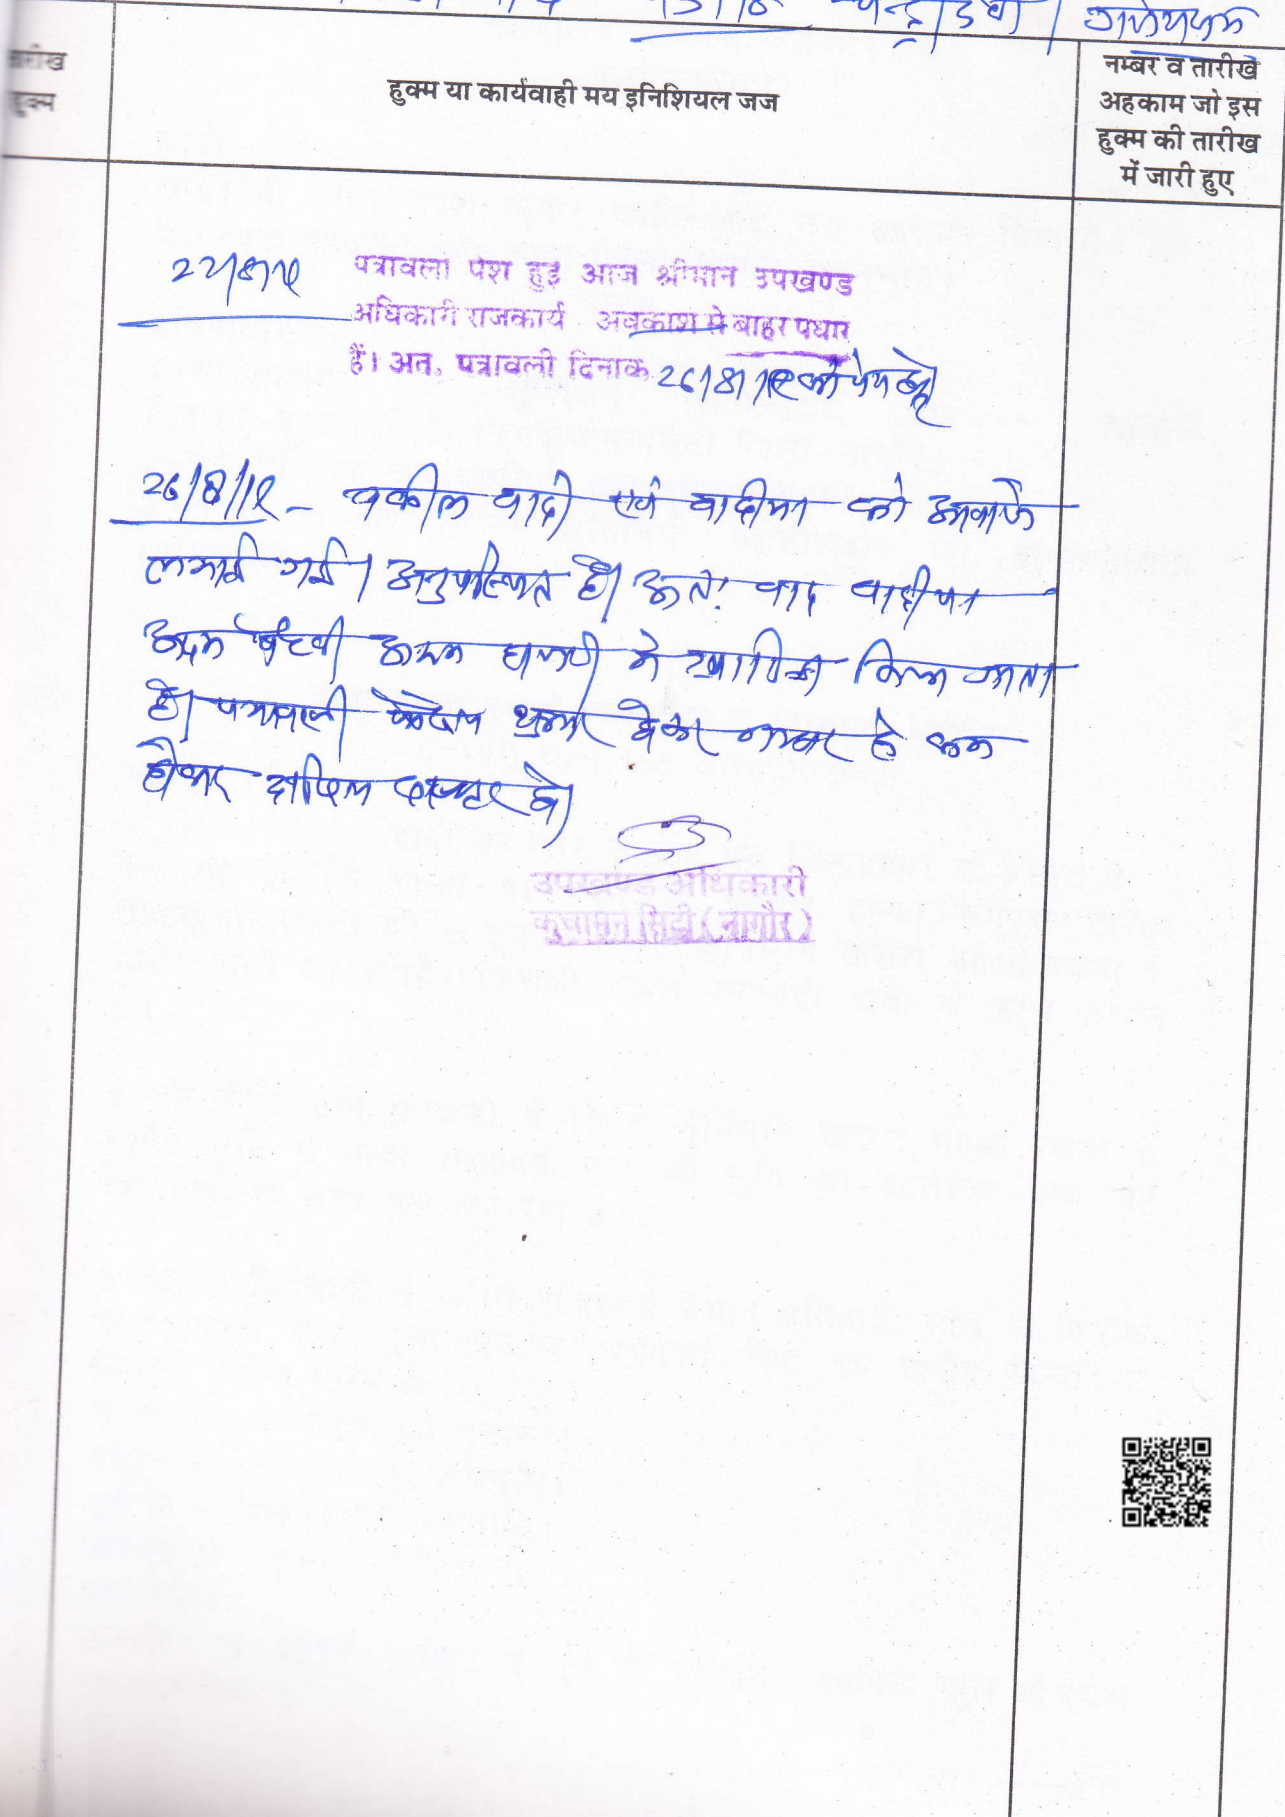 तारीख
हुक्म
हुक्म या कार्यवाही मय इनिशियल जज
नम्बर व तारीख
अहकाम जो इस
हुक्म की तारीख
में जारी हुए
पत्रावली पेश हुई आज श्रीमान उपखण्ड
अधिकारी राजकार्य अवकाश से बाहर पधार
हैं। अत. पत्रावली दिनांक 26/8/12 को पेश हो
26/8/12 - वकील वादी एवं वादीगण को आवाजे
लगाई गई। अनुपस्थित है। अतः वाद वादीगण
अदम पैरवी अदम हाजरी मे खारिज किया जाता
है। पत्रावली फैसल शुमार होकर नम्बर से कम
होकर दाखिल दफ्तर हो।
उपखण्ड अधिकारी
कुचामन सिटी (नागौर)